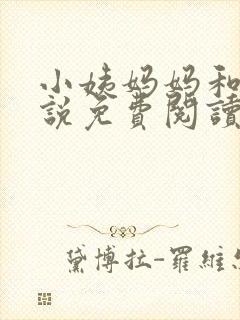 小姨妈妈和
說免費閱讀
黛博拉-羅維